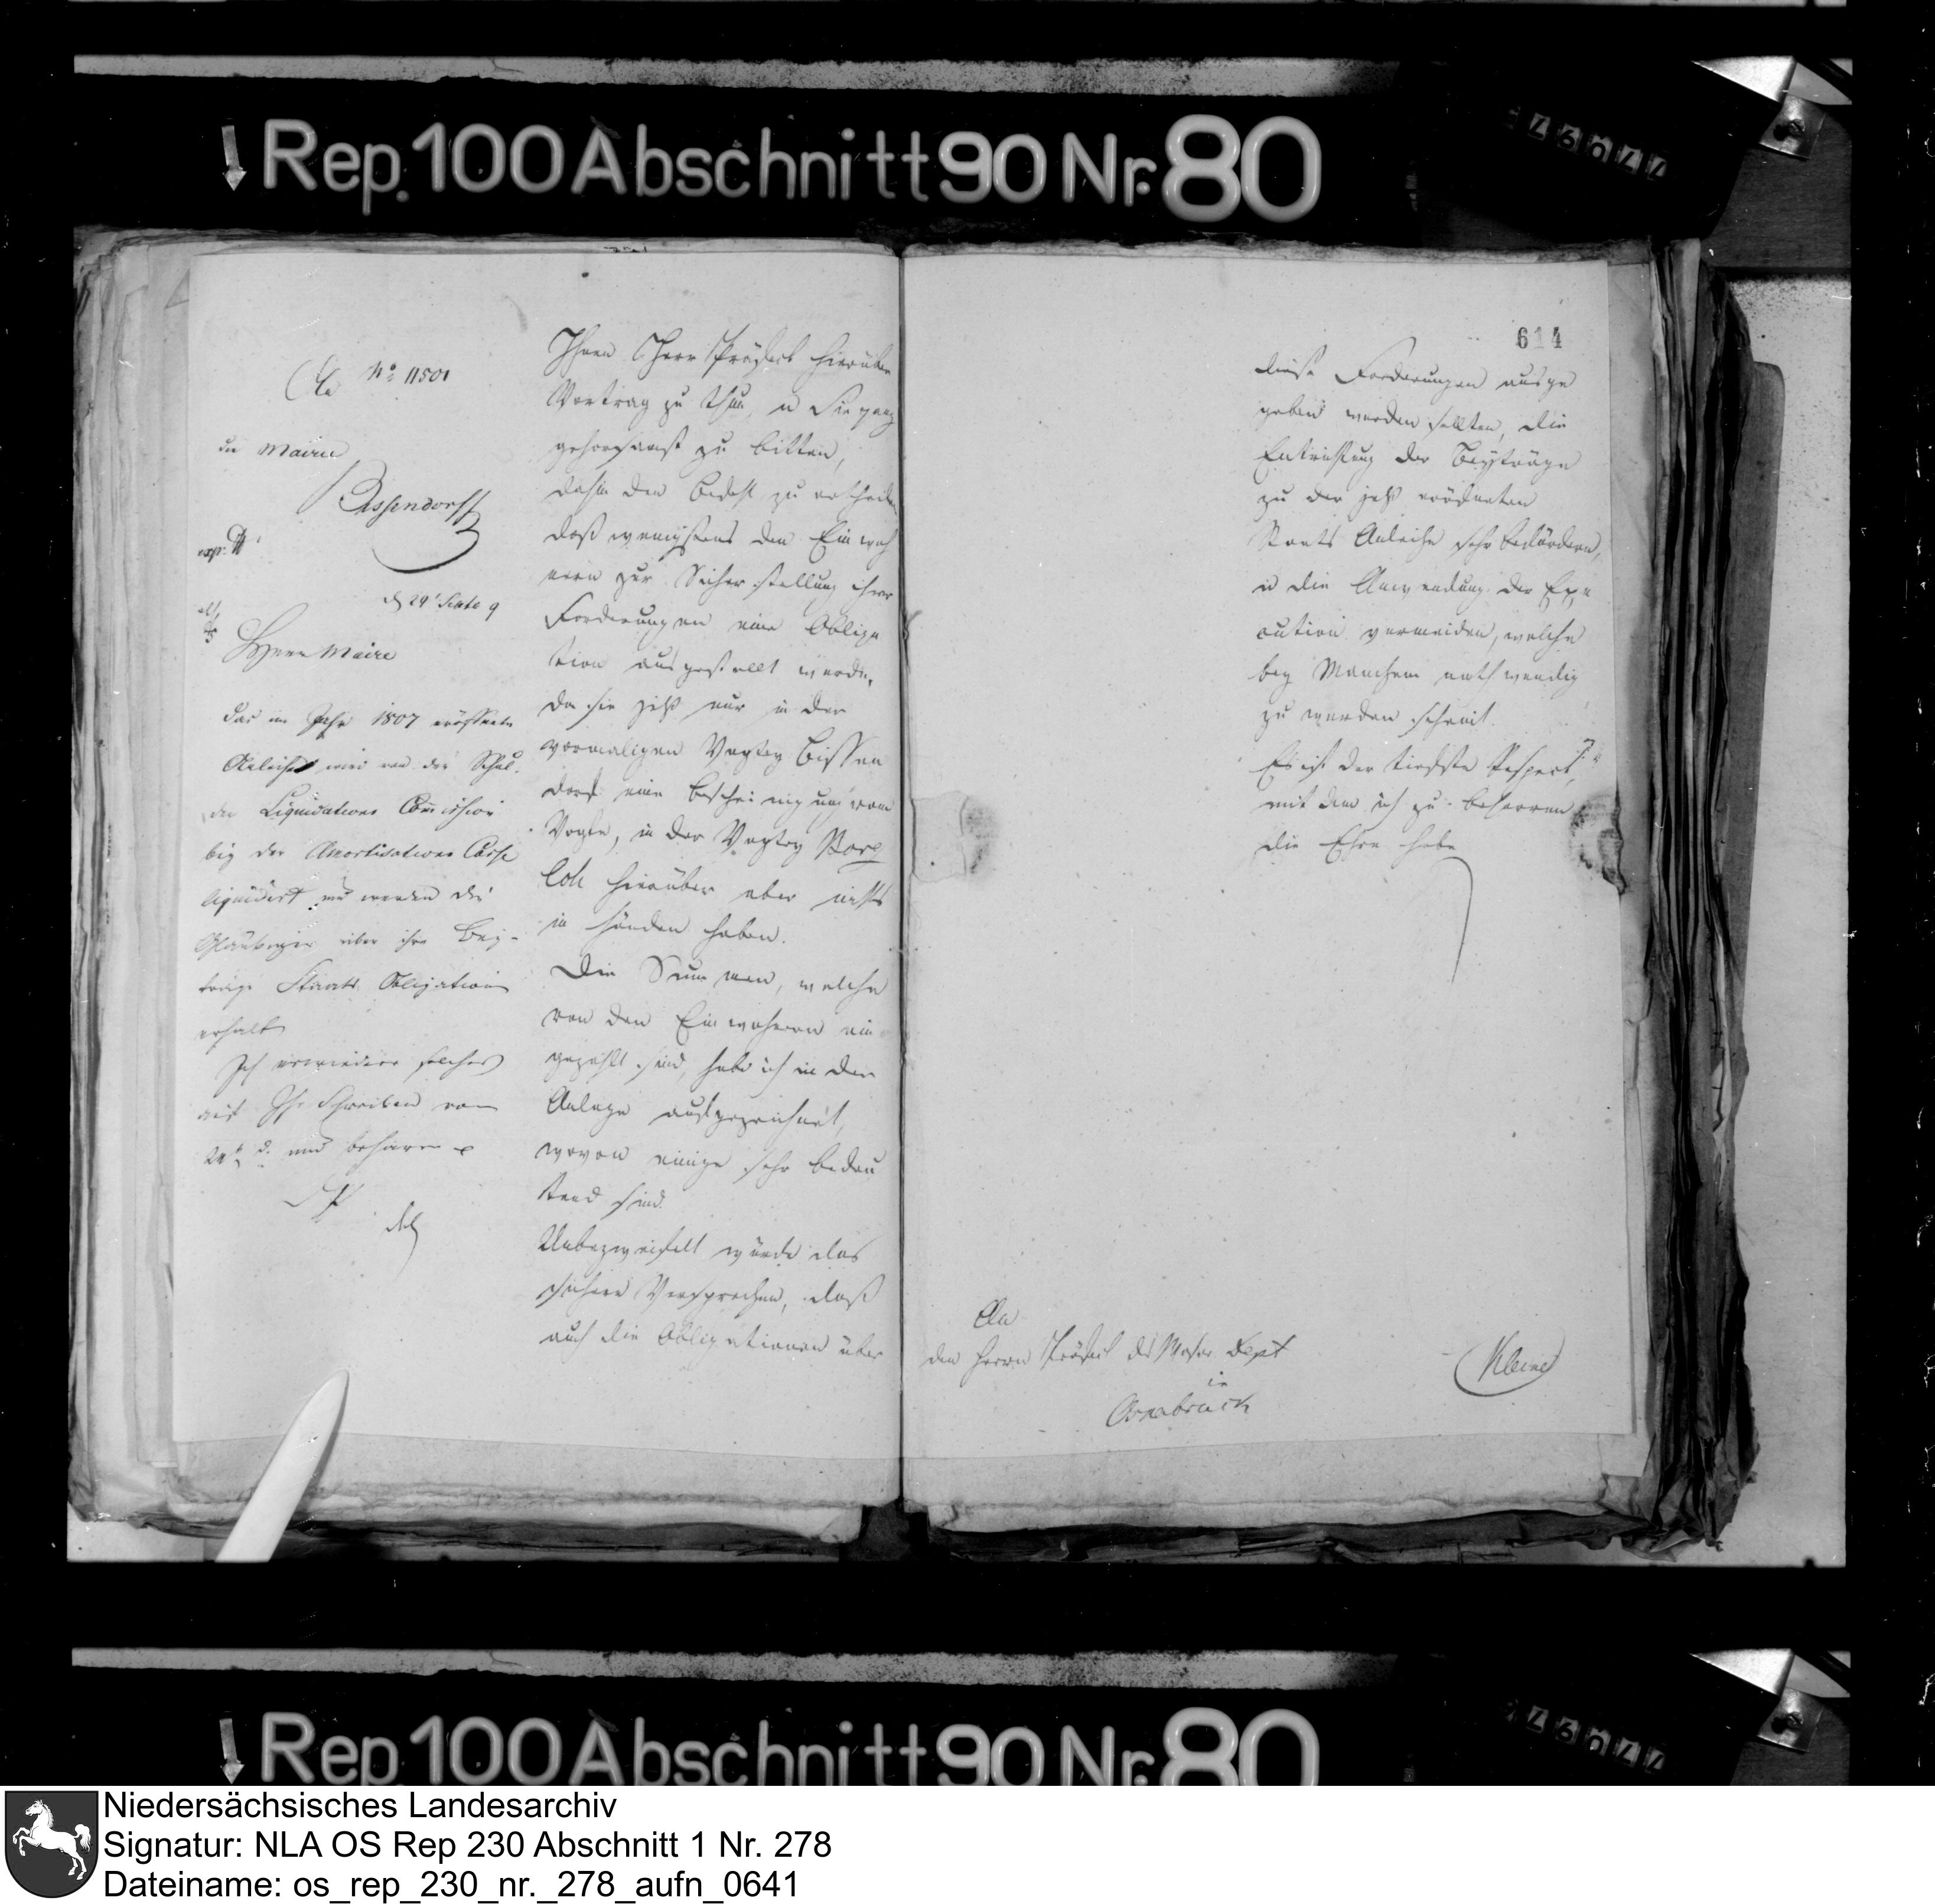 Rep. 100 Abschnitt 90 Nr. 80
An No 11501
die Mairie
Bissendorf
exp.
d 29t Septb 9
Herrn Maire
Das im Jahr 1807 eröffnete
Anleihen wird von der Schul-
den Liquidations Commission
bey der Amortisations Casse
liquidirt und werden die
Gläubiger über ihre Bey-
träge Staats Obligationen
erhalten
Ich erwiedere solches
auf Ihr Schreiben vom
und beharre
Ihnen Herr Präfect hierüber
Vortrag zu thun, u Sie ganz
gehorsamst zu bitten,
dahin den Befehl zu ertheilen
daß wenigstens den Einwoh
nern zur Sicherstellung ihrer
Forderungen eine Obliga
tion ausgestellt werde,
da sie jetzt nur in der
vormaligen Vogtey Bissen
dorf eine Bescheinigung vom
Vogte, in der Vogtey Borg
loh hierüber aber nichts
in Händen haben.
Die Summen, welche
von den Einwohnern ein
gezahlt sind, habe ich in der
Anlage aufgezeichnet,
wovon einige sehr bedeu
tend sind.
Unbezweifelt würde das
sichere Versprechen, daß
auch die Obligationen über
614
diese Forderungen ausge
geben werden sollten, die
Entrichtung der Beyträge
zu der jetzt eröfneten
Staats Anleihe sehr befördern,
u die Anwendung der Exe
cution vermeiden, welche
bey Manchem nothwendig
zu werden scheint.
Es ist der tiefste Respect,
mit dem ich zu beharren
die Ehre habe
An
den Herrn Präfect des Weser Dept
in
Osnabrück
Kleine
Rep. 100 Abschnitt 90 Nr. 80
Niedersächsisches Landesarchiv
Signatur: NLA OS Rep 230 Abschnitt 1 Nr. 278
Dateiname: os_rep_230_nr._278_aufn_0641